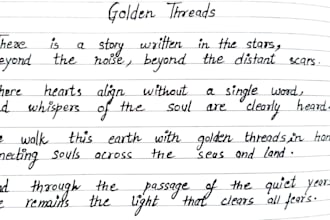 Golden Threads
There is a story written in the stars,
eyond the noise, beyond the distant scars.
here hearts align without a single word,
d whispers of the soul are clearly heard
walk this earth with golden threads in han
necting souls across the seas and land.
d through the passage of the quiet year
remains the light that clears all fears.